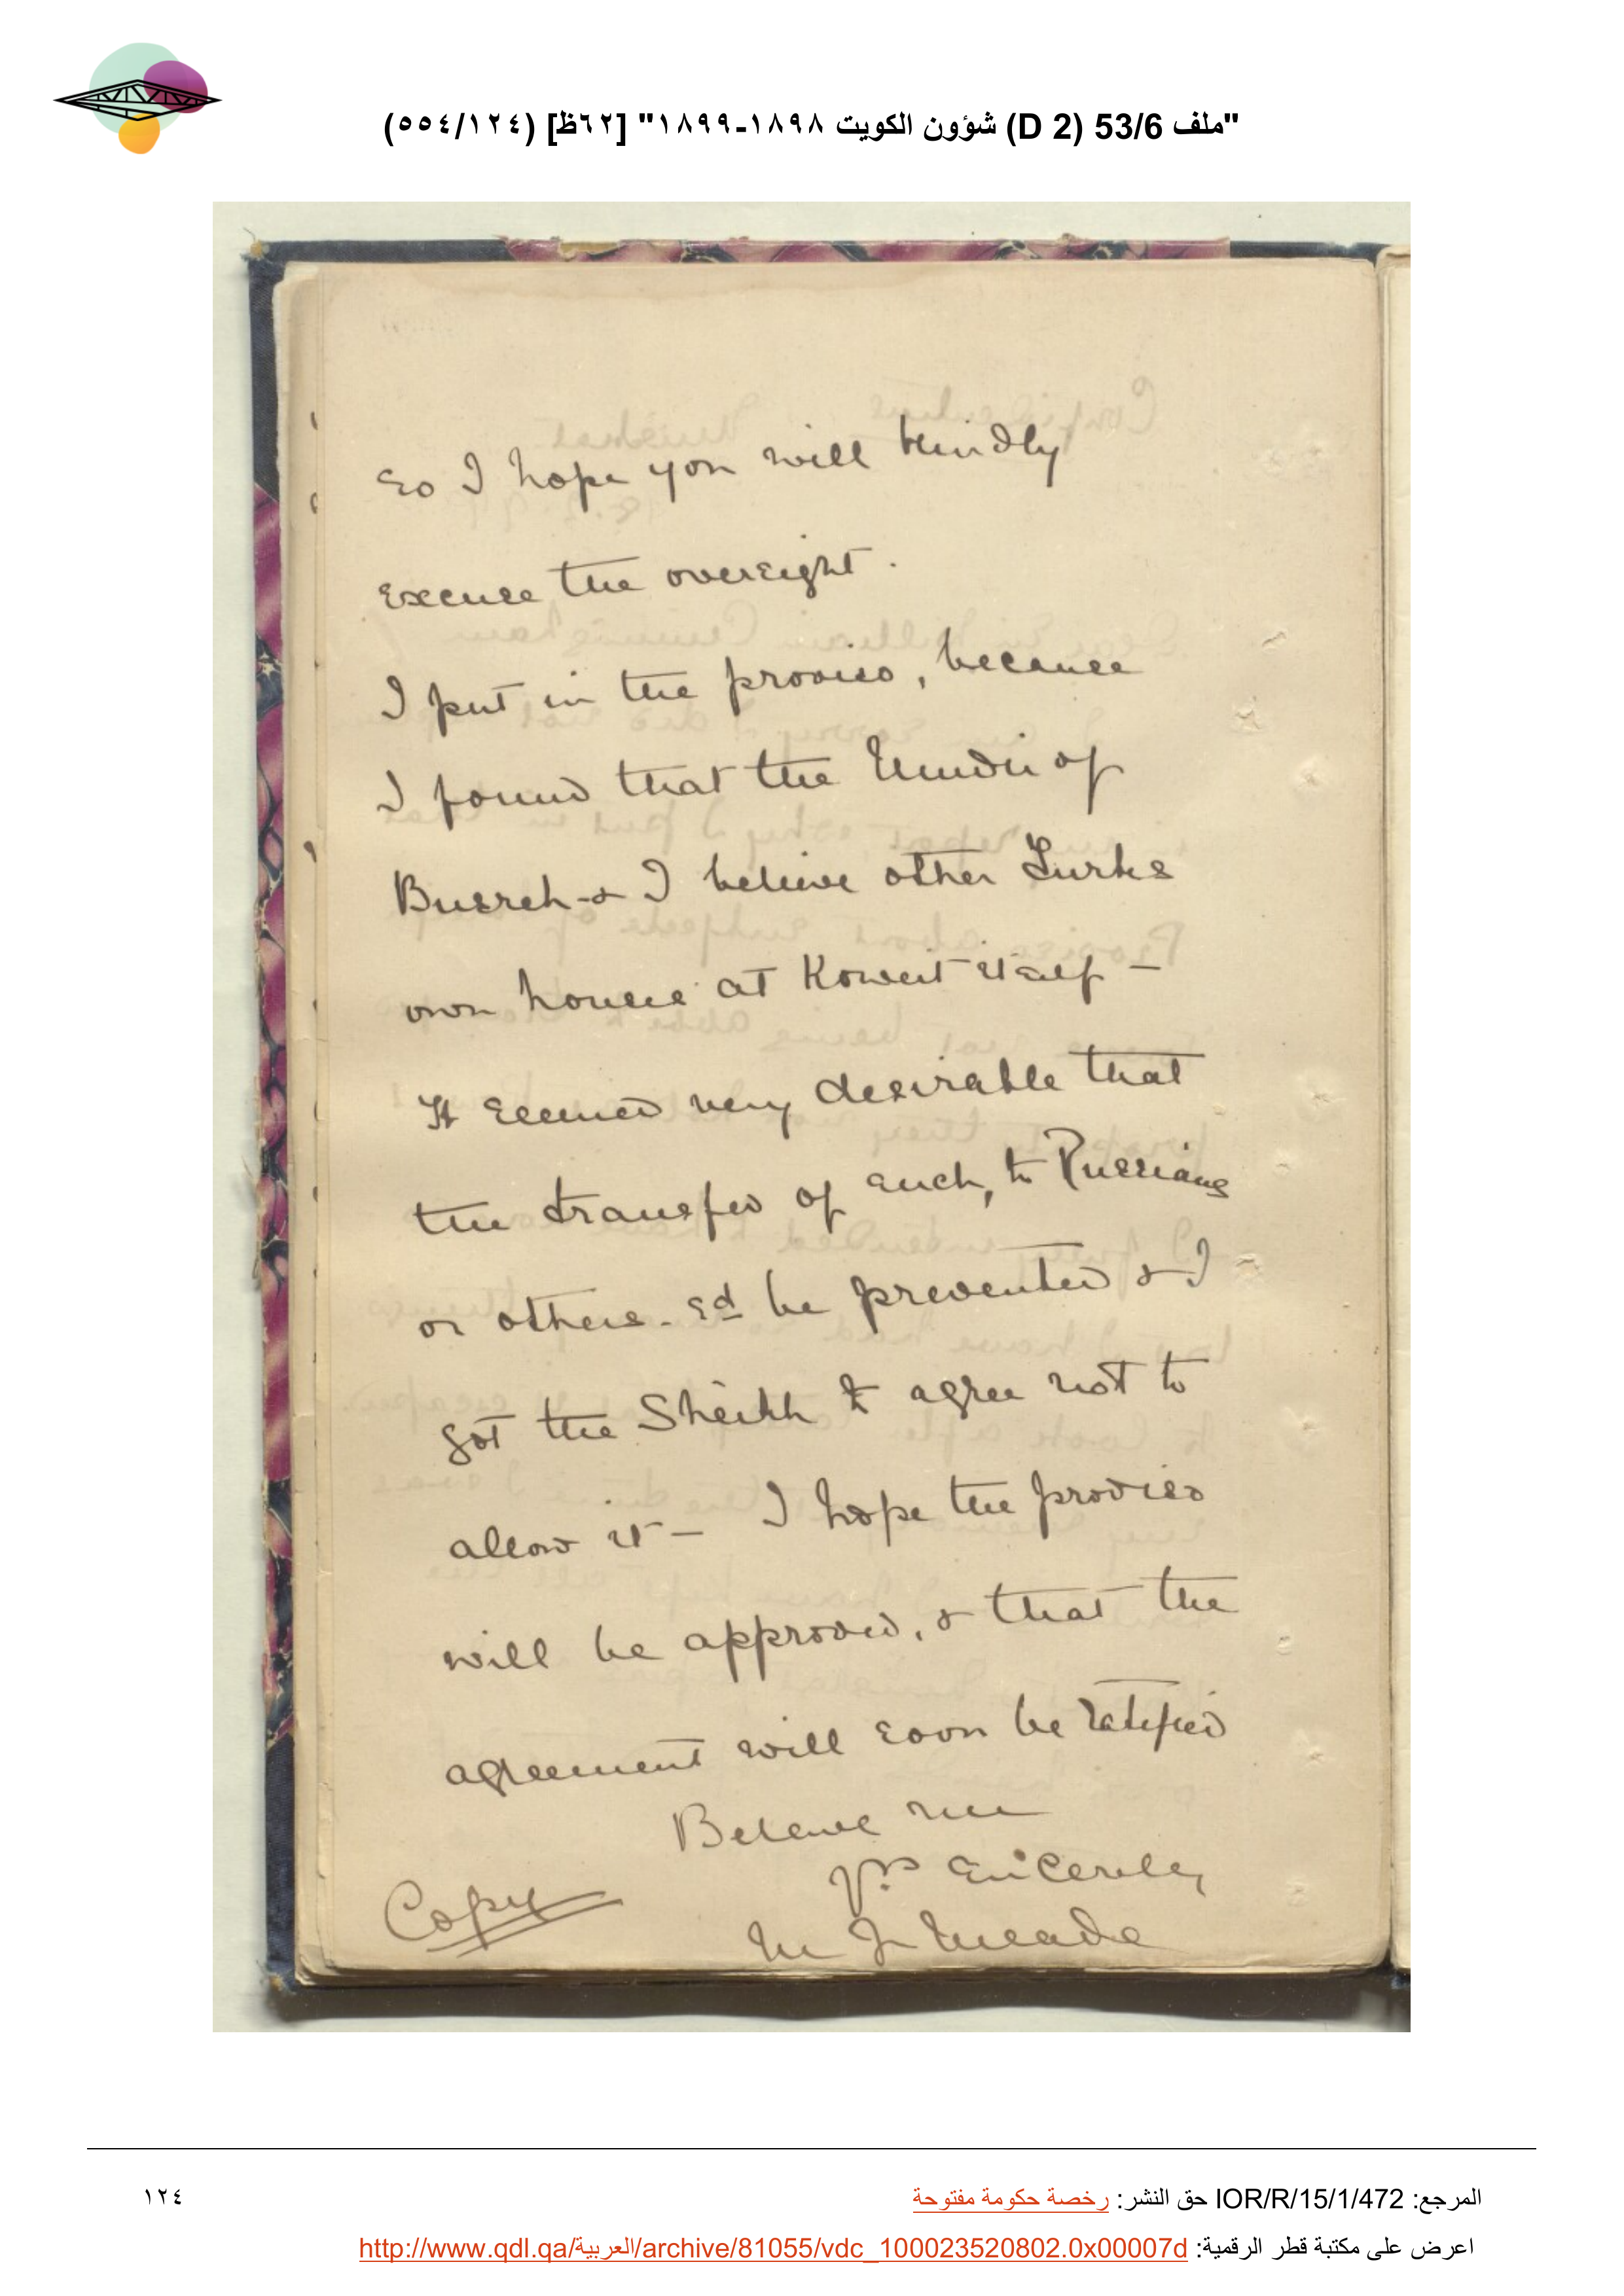 "ملف 53/6 (D 2) شؤون الكويت ١٨٩٨-١٨٩٩" [٦٢ظ] (٥٥٤/١٢٤)
so I hope you will kindly
excuse the oversight.
I put in the proviso, because
I found that the Mudir of
Busreh & I believe other Turks
own houses at Koweit itself -
It seemed very desirable that
the transfer of such, to Russians
or others. sd be prevented & I
got the Sheikh to agree not to
allow it - I hope the proviso
will be approved, & that the
agreement will soon be ratified
Believe me
Yrs sincerely
Copy
M J Meade
المرجع: IOR/R/15/1/472 حق النشر: رخصة حكومة مفتوحة
١٢٤
اعرض على مكتبة قطر الرقمية: http://www.qdl.qa/العربية/archive/81055/vdc_100023520802.0x00007d